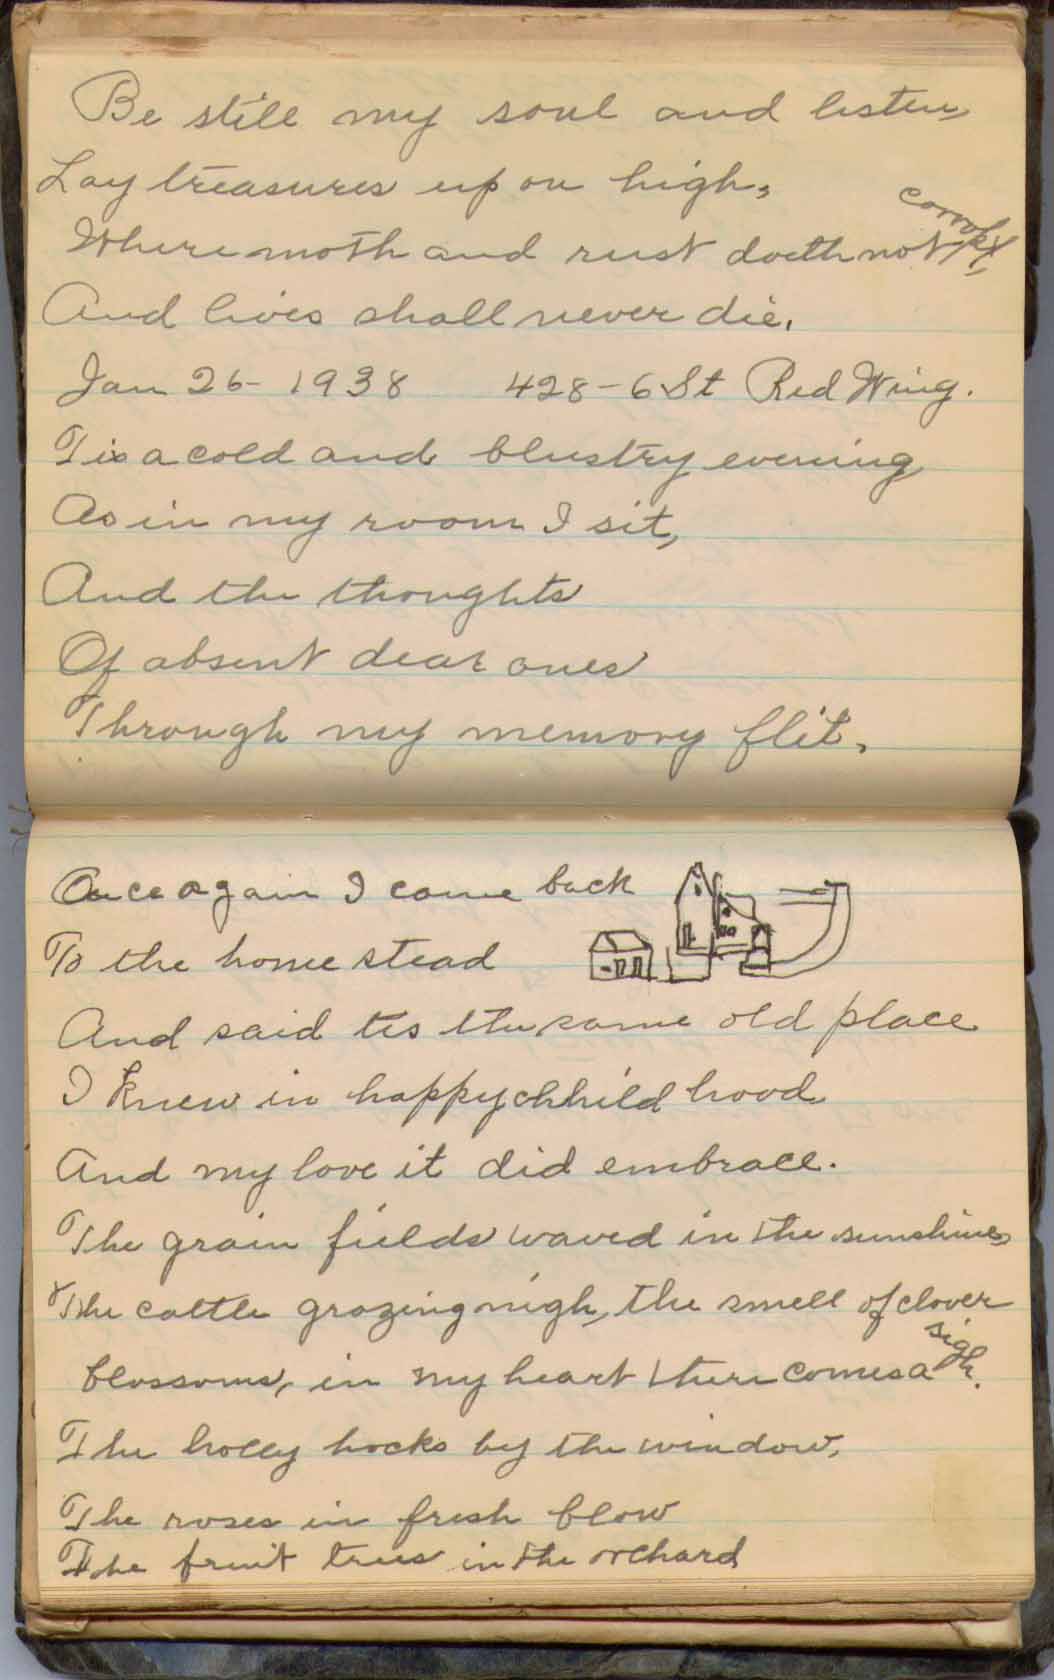 Be still my soul and listen,
Lay treasures up on high,
Where moth and rust doeth not corrokt,
And lives shall never die.
Jan 26- 1938 428-6 St Red Wing.
Tis a cold and blustry evening
As in my room I sit,
And the thoughts
Of absent dear ones
Through my memory flit.
Once again I come back
To the home stead
And said tis the same old place
I knew in happy chhild hood
And my love it did embrace.
The grain fields waved in the sunshine,
The cattle grazing nigh, the smell of clover
blossoms, in my heart there comes a sigh.
The holly hocks by the window,
The roses in fresh blow
The fruit trees in the orchard